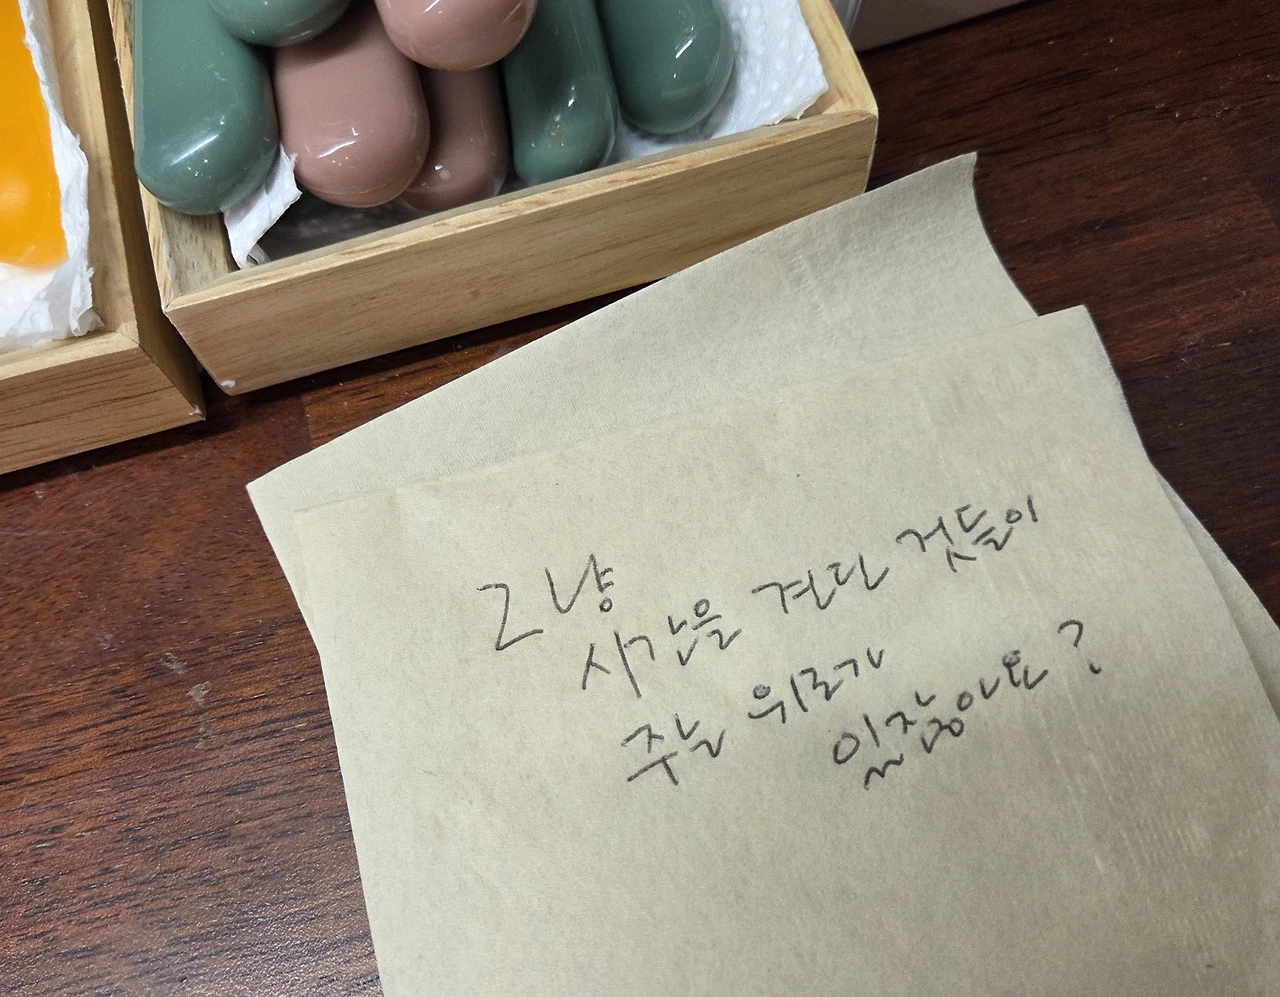 그냥
시간을 견딘 것들이
주는 위로가
있잖아요?